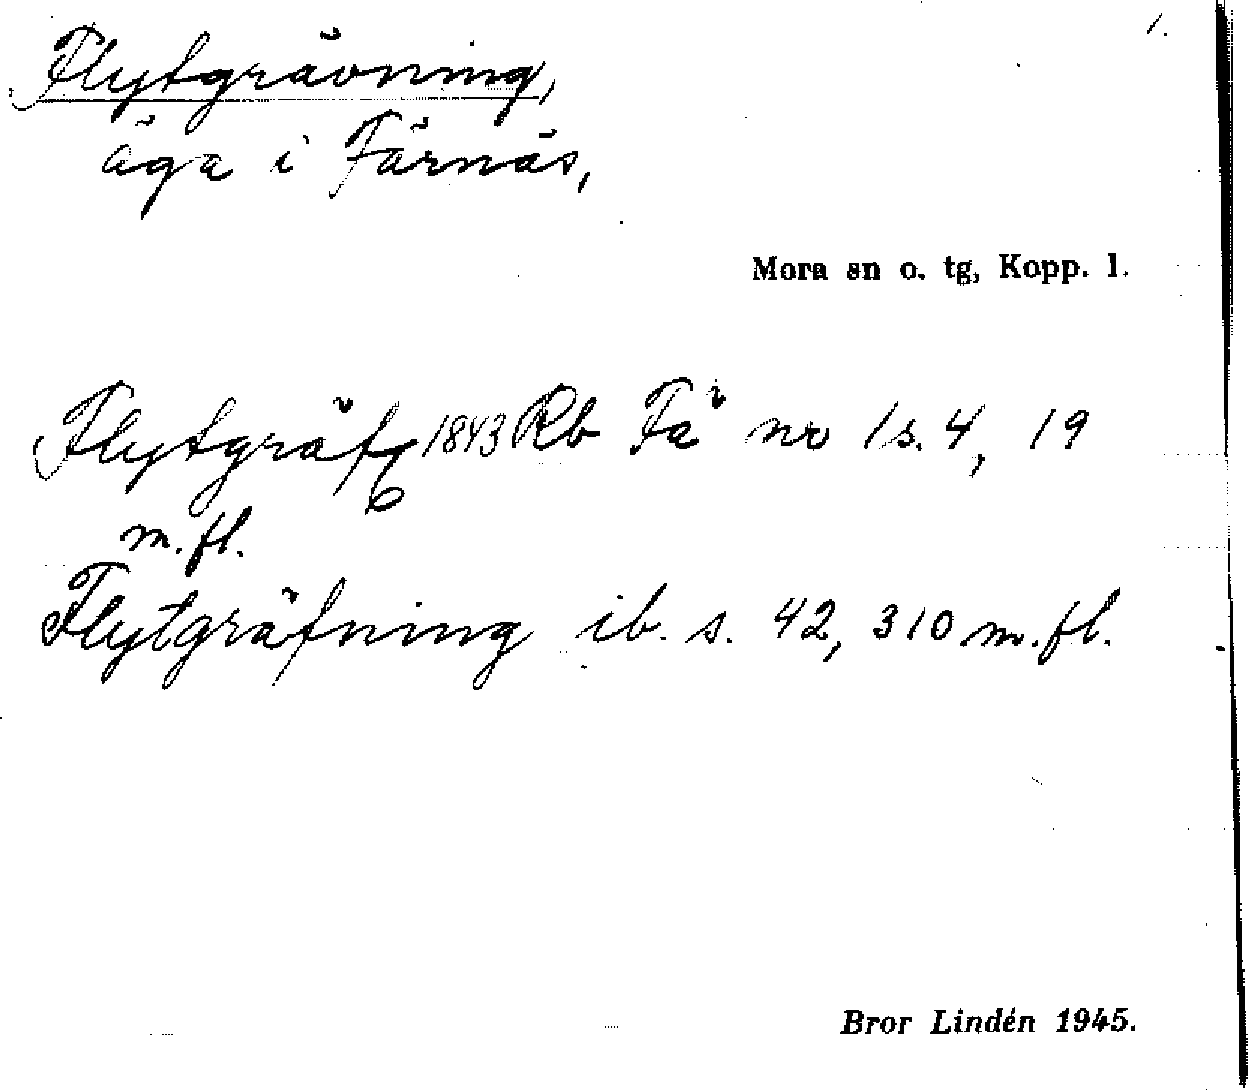 1.
Flytgrävning,
äga i Färnäs,
Mora sn o. tg, Kopp. l.
Flytgräf 1843 Rb Fä no 1 s. 4, 19
m.fl.
Flytgräfning ib. s. 42, 310 m.fl.
Bror Lindén 1945.